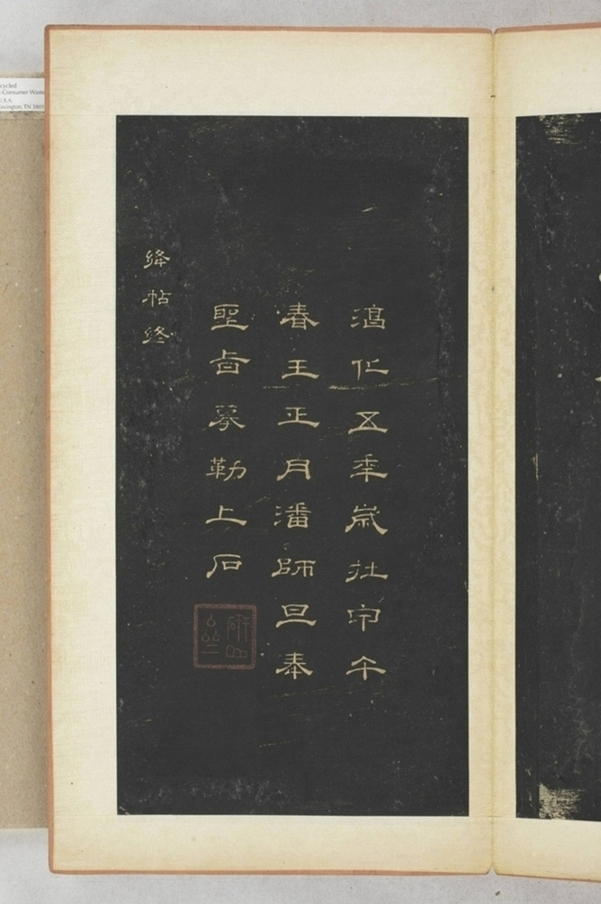 淳化五年歲在甲午
春王正月潘師旦奉
聖旨摹勒上石
絳帖終
cycled
Consumer Waste
TN